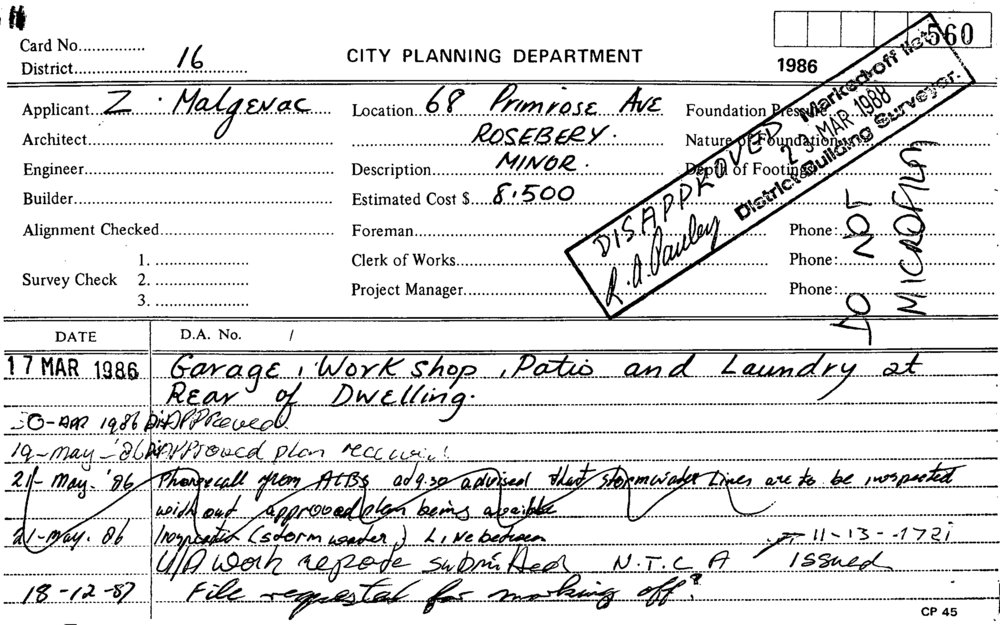 560
Card No.
District 16
CITY PLANNING DEPARTMENT
1986
Applicant Z. Malgenac
Location 68 Primrose Ave
Foundation
Architect
ROSEBERY.
Nature of Foundation
Engineer
Description MINOR.
Depth of Footing
Builder
Estimated Cost $ 8.500
Alignment Checked
Foreman
Phone:
Survey Check
1.
2.
3.
Clerk of Works
Phone:
Project Manager
Phone:
DISAPPROVED Marked off list
23 MAR 1988
R. A. Pauley District Building Surveyor.
DO NOT
MICROFILM
DATE D.A. No. /
17 MAR 1986 Garage, Work shop, Patio and Laundry at
Rear of Dwelling.
30-APR 1986 DisAPPROVED
19-may-'86 DisAPProved plan
21-May.'86 Phone call from advised that stormwater Lines are to be inspected
with out approved plan being available
21-may. 86 Inspected (storm water) Line between 11-13-
U/A work report submitted N.T.C.A issued
18-12-87 File requested for marking off?
CP 45